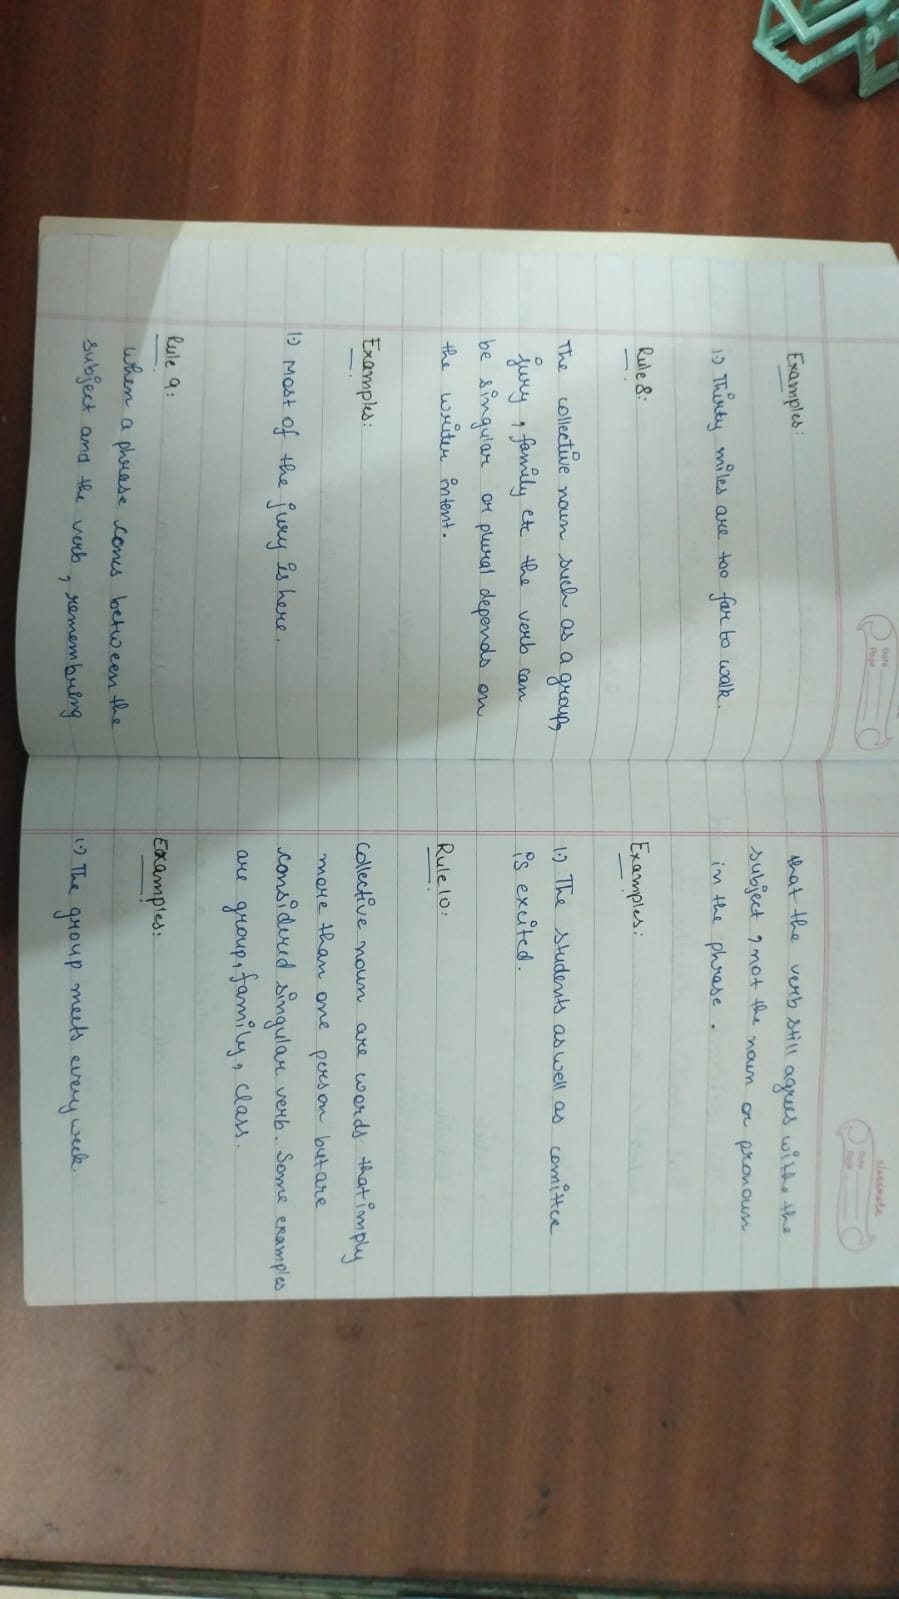 Date
Page
Examples:
1.) Thirty miles are too far to walk.
Rule 8:
The collective noun such as a group,
jury, family etc the verb can
be singular or plural depends on
the writer intent.
Examples:
1.) Most of the jury is here.
Rule 9:
When a phrase coms between the
subject and the verb, remembring
classmate
Date
Page
that the verb still agrees withe the
subject, not the noun or pronoun
in the phrase.
Examples:
1.) The students as well as comittee
is excited.
Rule 10:
Collective noun are words that imply
more than one person but are
considered singular verb. Some examples
are group, family, class.
Examples:
1.) The group meets every week.